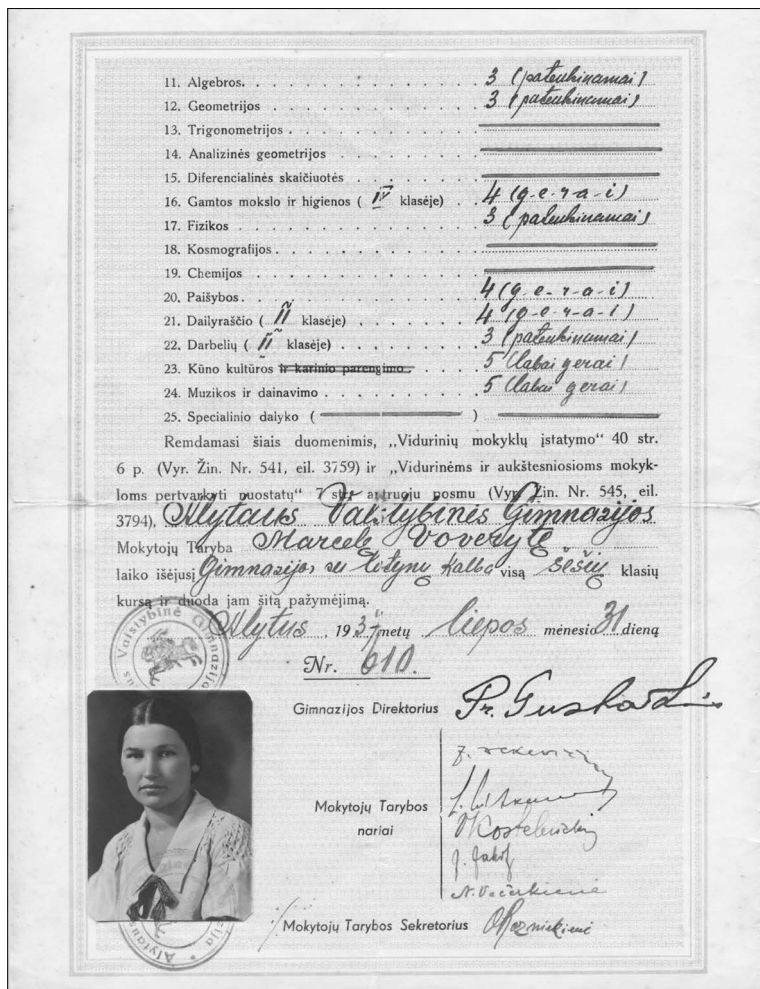 11. Algebros. . . . . . . . . . . . . . 3 (patenkinamai)
12. Geometrijos . . . . . . . . . . . . 3 (patenkinamai)
13. Trigonometrijos . . . . . . . . . .
14. Analizinės geometrijos . . . . . . .
15. Diferencialinės skaičiuotės . . . . .
16. Gamtos mokslo ir higienos ( IV klasėje) . . 4 (g-e-r-a-i)
17. Fizikos . . . . . . . . . . . . . . 3 (patenkinamai)
18. Kosmografijos . . . . . . . . . . .
19. Chemijos . . . . . . . . . . . . .
20. Paišybos . . . . . . . . . . . . . 4 (g-e-r-a-i)
21. Dailyraščio ( II klasėje) . . . . . . 4 (g-e-r-a-i)
22. Darbelių ( II klasėje) . . . . . . . 3 (patenkinamai)
23. Kūno kultūros ir karinio parengimo . . 5 (labai gerai)
24. Muzikos ir dainavimo . . . . . . . . 5 (labai gerai)
25. Specialinio dalyko ( )
Remdamasi šiais duomenimis, „Vidurinių mokyklų įstatymo“ 40 str.
6 p. (Vyr. Žin. Nr. 541, eil. 3759) ir „Vidurinėms ir aukštesniosioms mokyk-
loms pertvarkyti nuostatų“ 7 str. antruoju posmu (Vyr. Žin. Nr. 545, eil.
3794), Alytaus Valstybinės Gimnazijos
Mokytojų Taryba Marcelę Voverytę
laiko išėjusį Gimnazijos su lotynų kalba visą šešių klasių
kursą ir duoda jam šitą pažymėjimą.
Alytus , 1937 metų liepos mėnesio 31 dieną
Nr. 610.
Gimnazijos Direktorius
Mokytojų Tarybos
nariai
Mokytojų Tarybos Sekretorius